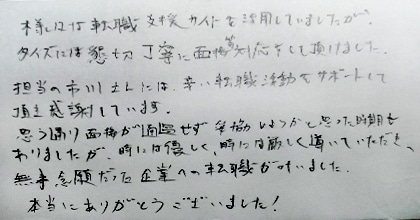 様々な転職支援サイトを活用していましたが、
タイズには懇切丁寧に面接等対応をして頂けました。
担当の市川さんには、辛い転職活動をサポートして
頂き感謝しています。
思う通り面接が通過せず妥協しようかと思った時期も
ありましたが、時には優しく、時には厳しく導いていただき、
無事念願だった企業への転職が叶いました。
本当にありがとうございました!